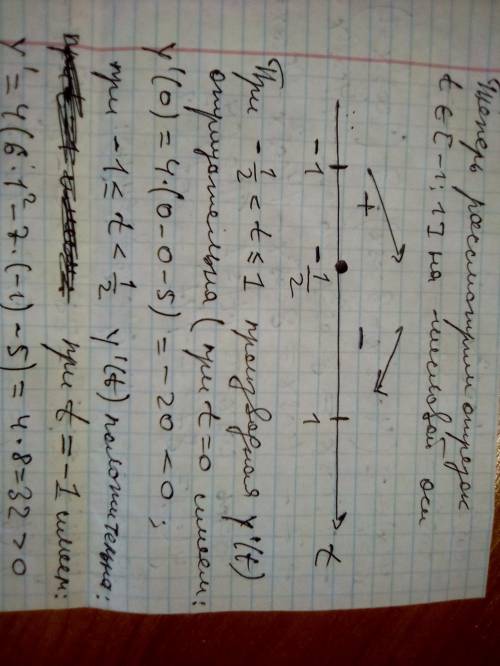 Теперь рассмотрим отрезок
t ∈ [-1; 1] на числовой оси
+ -
-1 -1/2 1 t
При -1/2 < t ≤ 1 производная y'(t)
отрицательна (при t=0 имеем:
y'(0) = 4·(0-0-5) = -20 < 0;
при -1 ≤ t < 1/2 y'(t) положительна:
при t = -1 имеем:
y' = 4(6·1²-7·(-1)-5) = 4·8=32 > 0